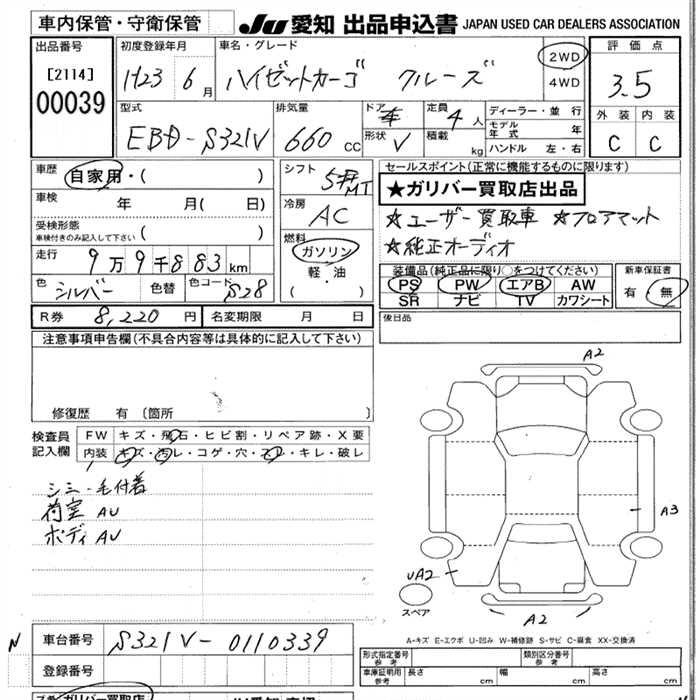 車内保管・守衛保管
JU 愛知 出品申込書 JAPAN USED CAR DEALERS ASSOCIATION
出品番号
[2114]
00039
初度登録年月
H23 6月
車名・グレード
ハイゼットカーゴ クルーズ
2WD
4WD
評価点
3.5
外装 内装
C C
型式
EBD-S321V
排気量
660 CC
ドア
形状 V
定員 4人
積載 kg
ディーラー・並行
モデル年式 年
ハンドル 左・右
車歴 自家用・( )
車検 年 月( 日)
受検形態
車検付きのみ記入して下さい ( )
走行 9万9千883km
色 シルバー 色替 色コード S28
シフト 5 MT
冷房 AC
燃料
ガソリン
軽・油
( )
セールスポイント(正常に機能するものに限ります)
★ガリバー買取店出品
☆ユーザー買取車 ☆フロアマット
☆純正オーディオ
装備品(純正品に限り○をつけてください)
PS PW エアB AW
SR ナビ TV カワシート
新車保証書
有 無
R券 8,220円 名変期限 月 日
後日品
注意事項申告欄(不具合内容等は具体的に記入して下さい)
修復歴 有 [箇所 ]
検査員記入欄
FW キズ・飛石・ヒビ割・リペア跡・X要
内装 キズ・汚レ・コゲ・穴・スレ・キレ・破レ
シミ・毛付着
荷室 AU
ボディ AU
A2
A3
UA2
スペア
A2
A-キズ E-エクボ U-凹み W-補修跡 S-サビ C-腐食 XX-交換済
N
車台番号 S321V-0110339
登録番号
形式指定番号 参考
類別区分番号 参考
車庫証明用 参考 長さ cm 幅 cm 高さ cm
ガリバー買取店